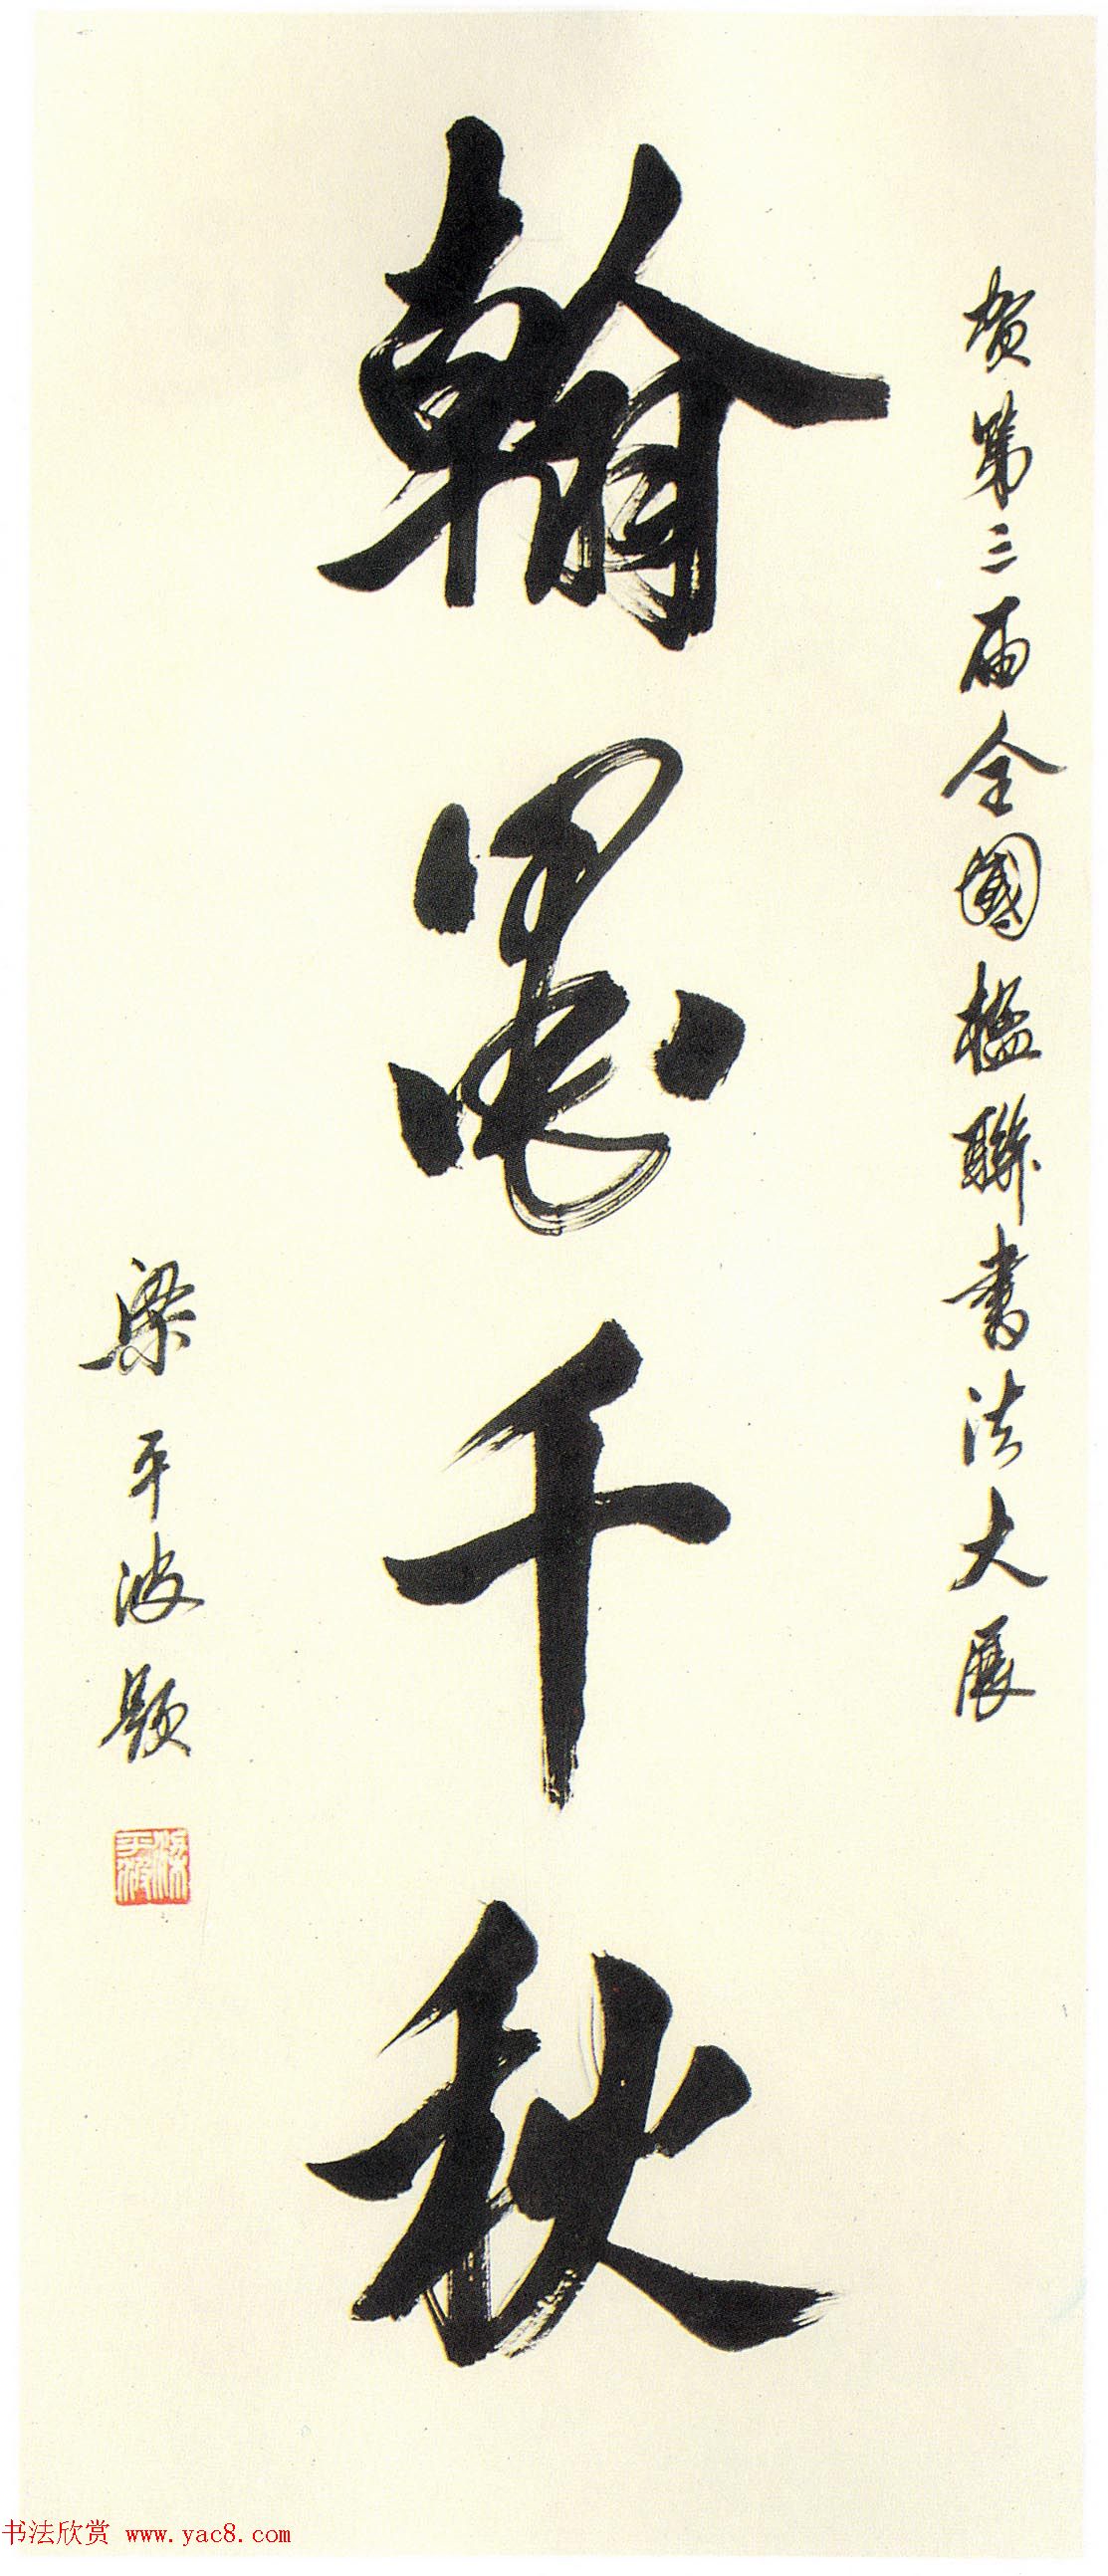 贺第三届全國楹聯書法大展
翰墨千秋
梁平波题
梁平波
书法欣赏 www.yac8.com